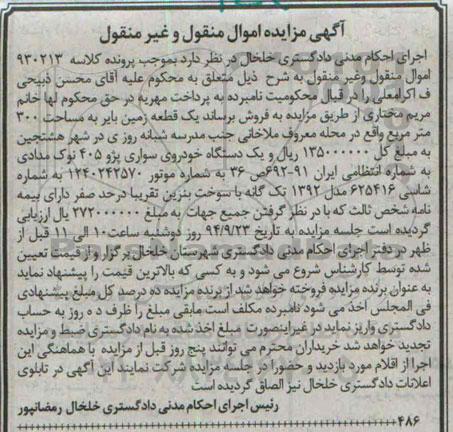 آگهی مزایده اموال منقول و غیر منقول
اجرای احکام مدنی دادگستری خلخال در نظر دارد بموجب پرونده کلاسه ۹۳۰۲۱۳
اموال منقول وغیر منقول به شرح ذیل متعلق به محکوم علیه آقای محسن ذبیحی
ف اکرامعلی را در قبال محکومیت نامبرده به پرداخت مهریه در حق محکوم لها خانم
مریم مختاری از طریق مزایده به فروش برساند یک قطعه زمین بایر به مساحت ۳۰۰
متر مربع واقع در محله معروف ملاخانی جنب مدرسه شبانه روزی در شهر هشتجین
به مبلغ کل ۱۳۵۰۰۰۰۰۰ ریال و یک دستگاه خودروی سواری پژو ۴۰۵ نوک مدادی
به شماره انتظامی ایران ۹۱-۶۹۲ص ۳۶ به شماره موتور ۱۲۴۰۲۴۲۵۷۰ به شماره
شاسی ۶۲۵۴۱۶ مدل ۱۳۹۲ تک گانه با سوخت بنزین تقریبا درحد صفر دارای بیمه
نامه شخص ثالث که با در نظر گرفتن جمیع جهات به مبلغ ۲۷۲۰۰۰۰۰۰ یال ارزیابی
گردیده است جلسه مزایده به تاریخ ۹۴/۹/۲۳ روز دوشنبه ساعت۱۰ الی ۱۱ قبل از
ظهر در دفتر اجرای احکام مدنی دادگستری شهرستان خلخال برگزار و از قیمت تعیین
شده توسط کارشناس شروع می شود و به کسی که بالاترین قیمت را پیشنهاد نماید
به عنوان برنده مزایده فروخته خواهد شد از برنده مزایده ده درصد کل مبلغ پیشنهادی
فی المجلس اخذ می شود نامبرده مکلف است مابقی مبلغ را ظرف ده روز به حساب
دادگستری واریز نماید در غیراینصورت مبلغ اخذ شده به نام دادگستری ضبط و مزایده
تجدید خواهد شد خریداران محترم می توانند پنج روز قبل از مزایده با هماهنگی این
اجرا از اقلام مورد بازدید و حضورا در جلسه مزایده شرکت نمایند این آگهی در تابلوی
اعلانات دادگستری خلخال نیز الصاق گردیده است
رئیس اجرای احکام مدنی دادگستری خلخال رمضانپور
۴۸۶